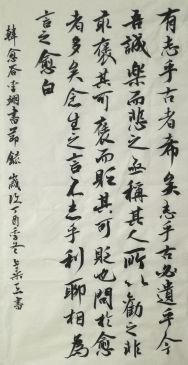 有志乎古者希矣志乎古必遺乎今
吾誠樂而悲之亟稱其人所以勸之非
敢褒其可褒而貶其可貶也問於愈
者多矣念生之言不志乎利聊相為
言之愈白
韓愈答李翊書節錄 歲次丁酉